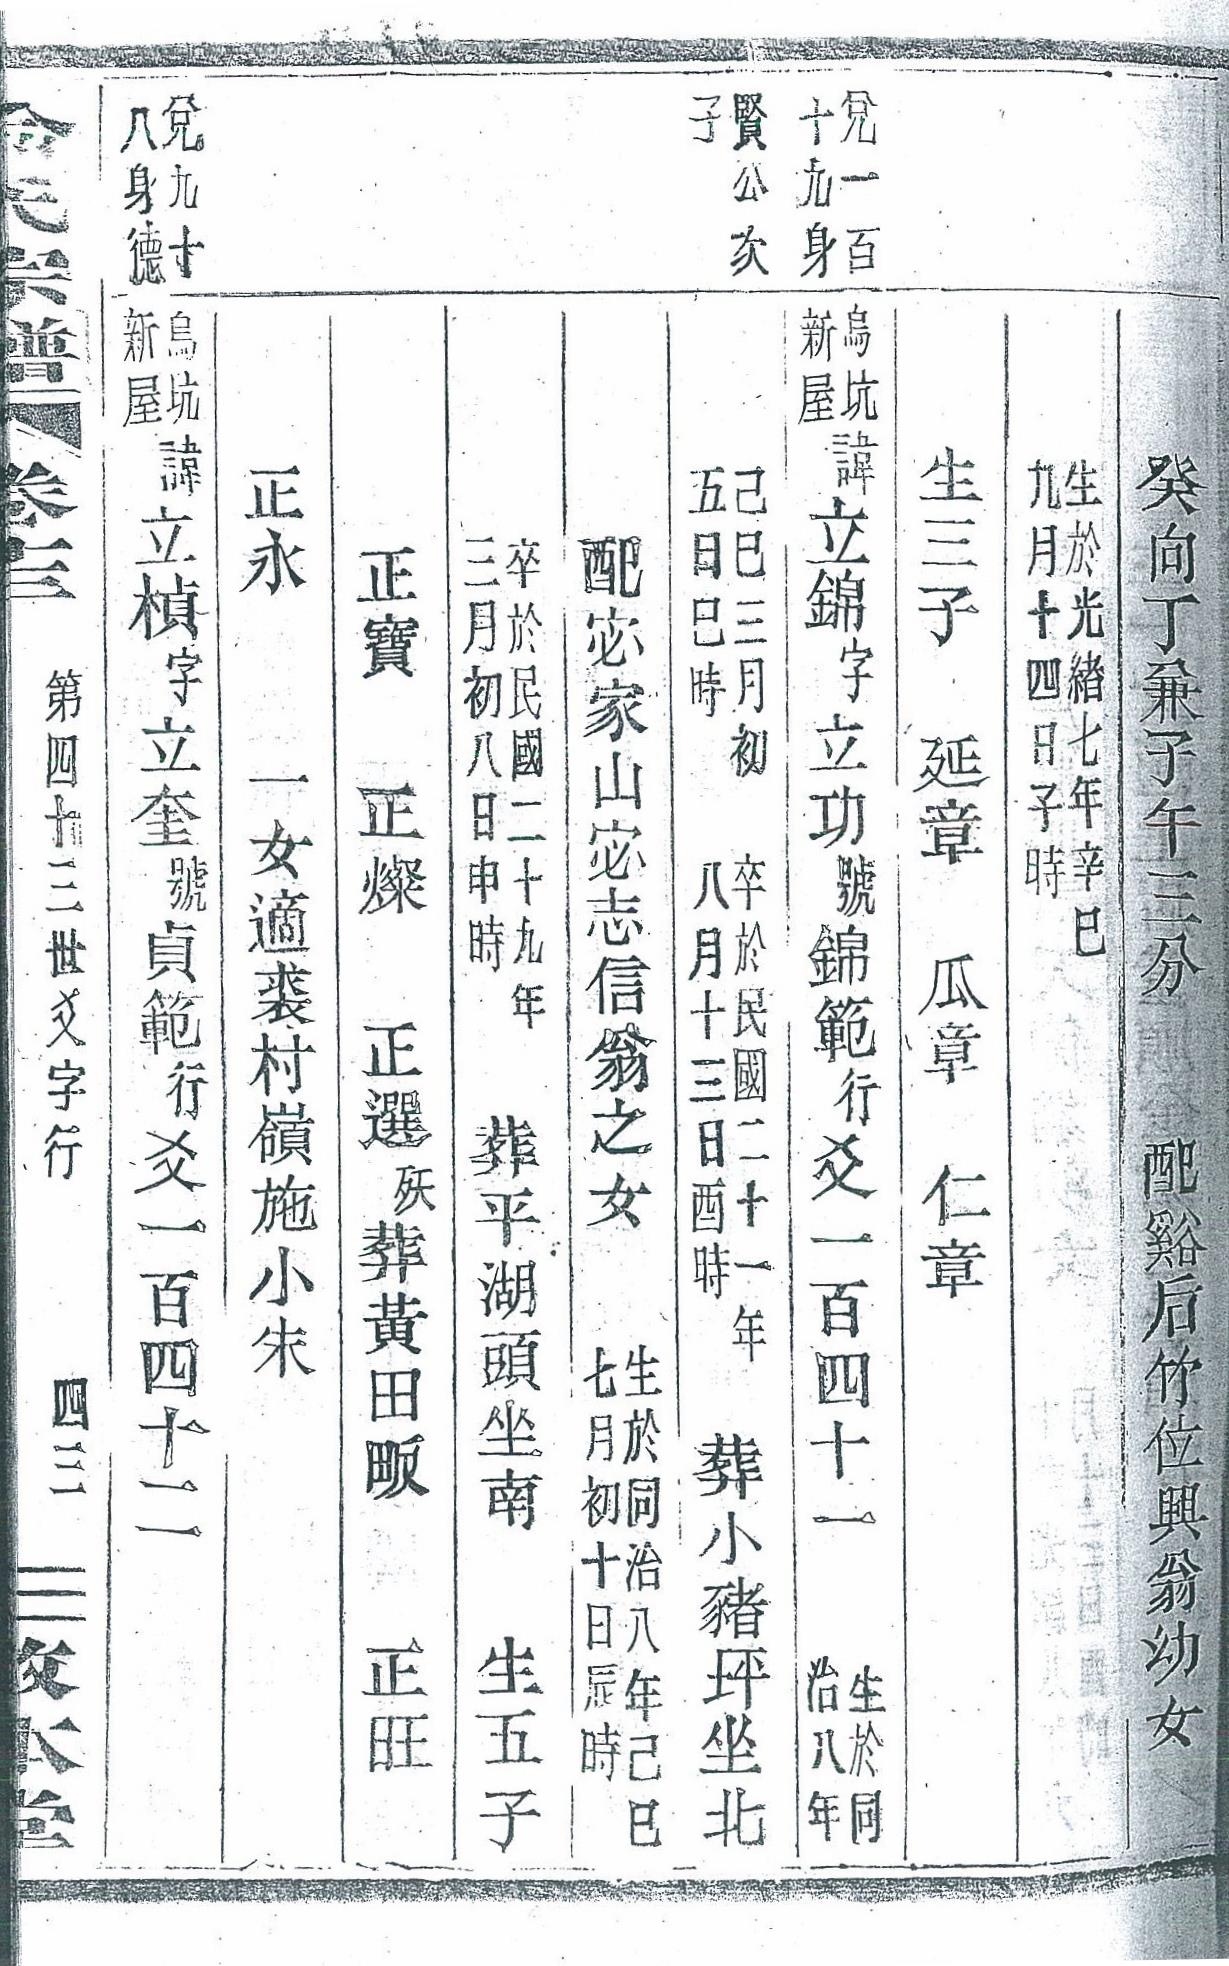 癸向丁兼子午三分 配谿后竹位興翁幼女
生於光緒七年辛巳
九月十四日子時
生三子 延章 瓜章 仁章
兌一百
十九身
賢公次
子
烏坑
新屋
諱立錦字立功號錦範行爻一百四十一
生於同
治八年
己巳三月初
五日巳時
卒於民國二十一年
八月十三日酉時
葬小豬坪坐北
配宓家山宓志信翁之女
生於同治八年己巳
七月初十日辰時
卒於民國二十九年
三月初八日申時
葬平湖頭坐南 生五子
正寶 正燦 正選殀葬黃田畈 正旺
正永 一女適裘村嶺施小朱
兌九十
八身德
烏坑
新屋
諱立楨字立奎號貞範行爻一百四十二
氏宗譜 卷三 第四十三世爻字行 四三 本堂